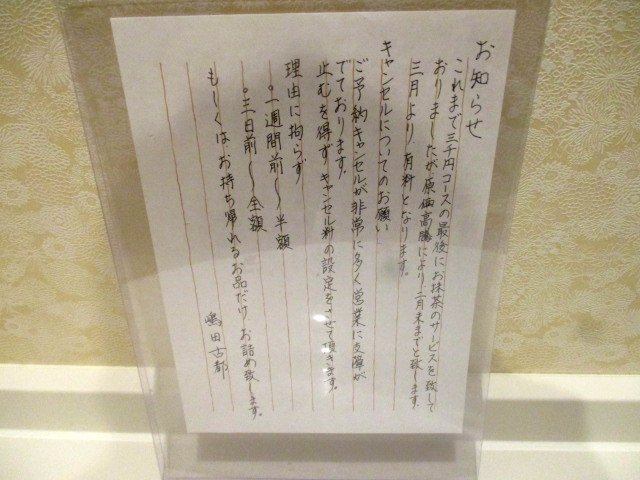 お知らせ
これまで三千円コースの最後にお抹茶のサービスを致して
おりましたが原価高騰により二月末までと致します
三月より有料となります。
キャンセルについてのお願い
ご予約キャンセルが非常に多く営業に支障が
でております。
止むを得ずキャンセル料の設定をさせて頂きます。
理由に拘らず
。一週間前〜半額
。三日前〜全額
もしくはお持ち帰れるお品だけ お詰め致します。
嶋田古都